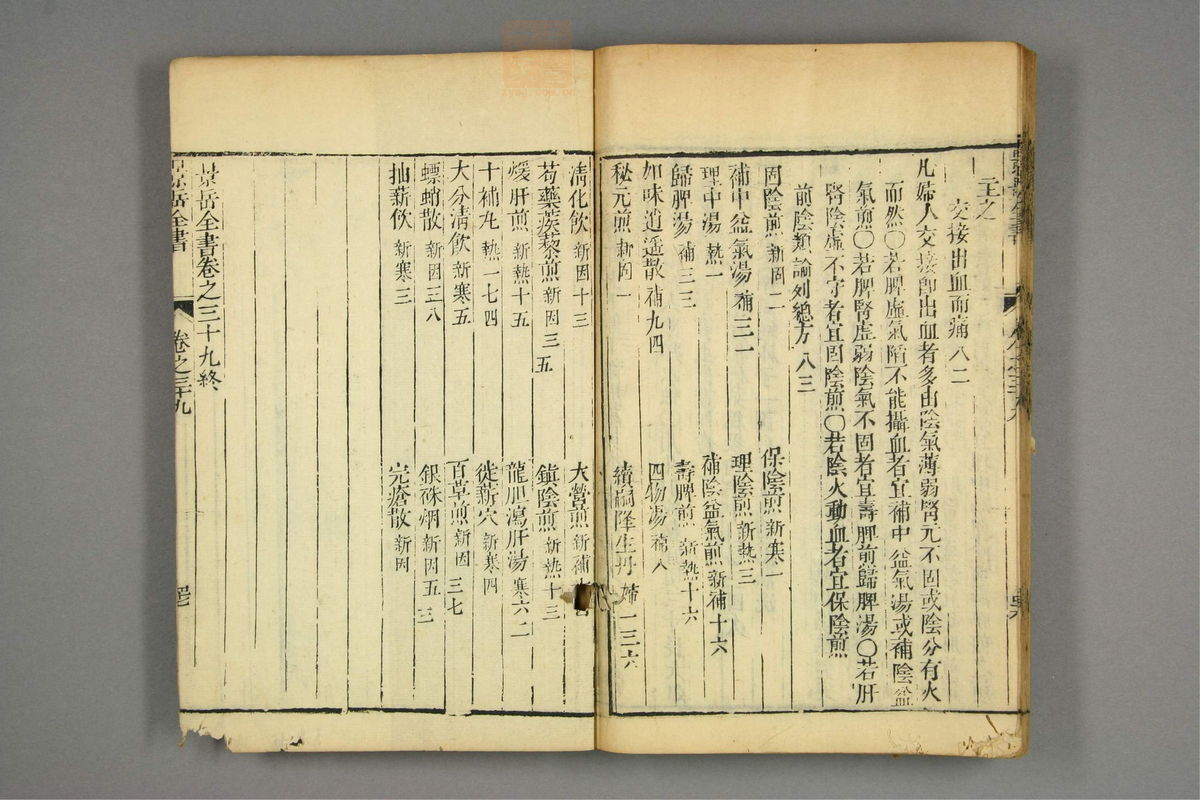 主之
交接出血而痛八二
凡婦人交接即出血者多由陰氣薄弱腎元不固或陰分有火
而然〇若脾虛氣陷不能攝血者宜補中益氣湯或補陰益
氣煎〇若脾腎虛弱陰氣不固者宜壽脾煎歸脾湯〇若肝
腎陰虛不守者宜固陰煎〇若陰火動血者宜保陰煎
前陰類論列總方八三
固陰煎 新固二 保陰煎 新寒一
補中益氣湯 補三一 理陰煎 新熱三
理中湯 熱一 補陰益氣煎 新補十六
歸脾湯 補三三 壽脾煎 新熱十六
加味逍遥散 補九四 四物湯 補八
秘元煎 新固一 續嗣降生丹 婦一三六
清化飲 新因十三 大營煎 新補
芍藥蒺藜煎 新因三五 鎮陰煎 新熱十三
煖肝煎 新熱十五 龍胆瀉肝湯 寒六二
十補丸 熱一七四 徙薪穴 新寒四
大分清飲 新寒五 百草煎 新因三七
螵蛸散 新因三八 銀硃烟 新因五三
抽薪飲 新寒三 完瘡散 新因
景岳全書卷之三十九終
景岳全書 卷之三十九